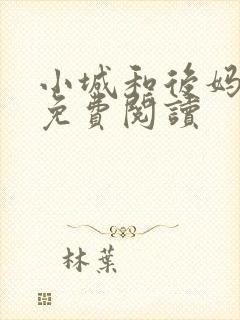 小城和後妈
免費閱讀
林葉